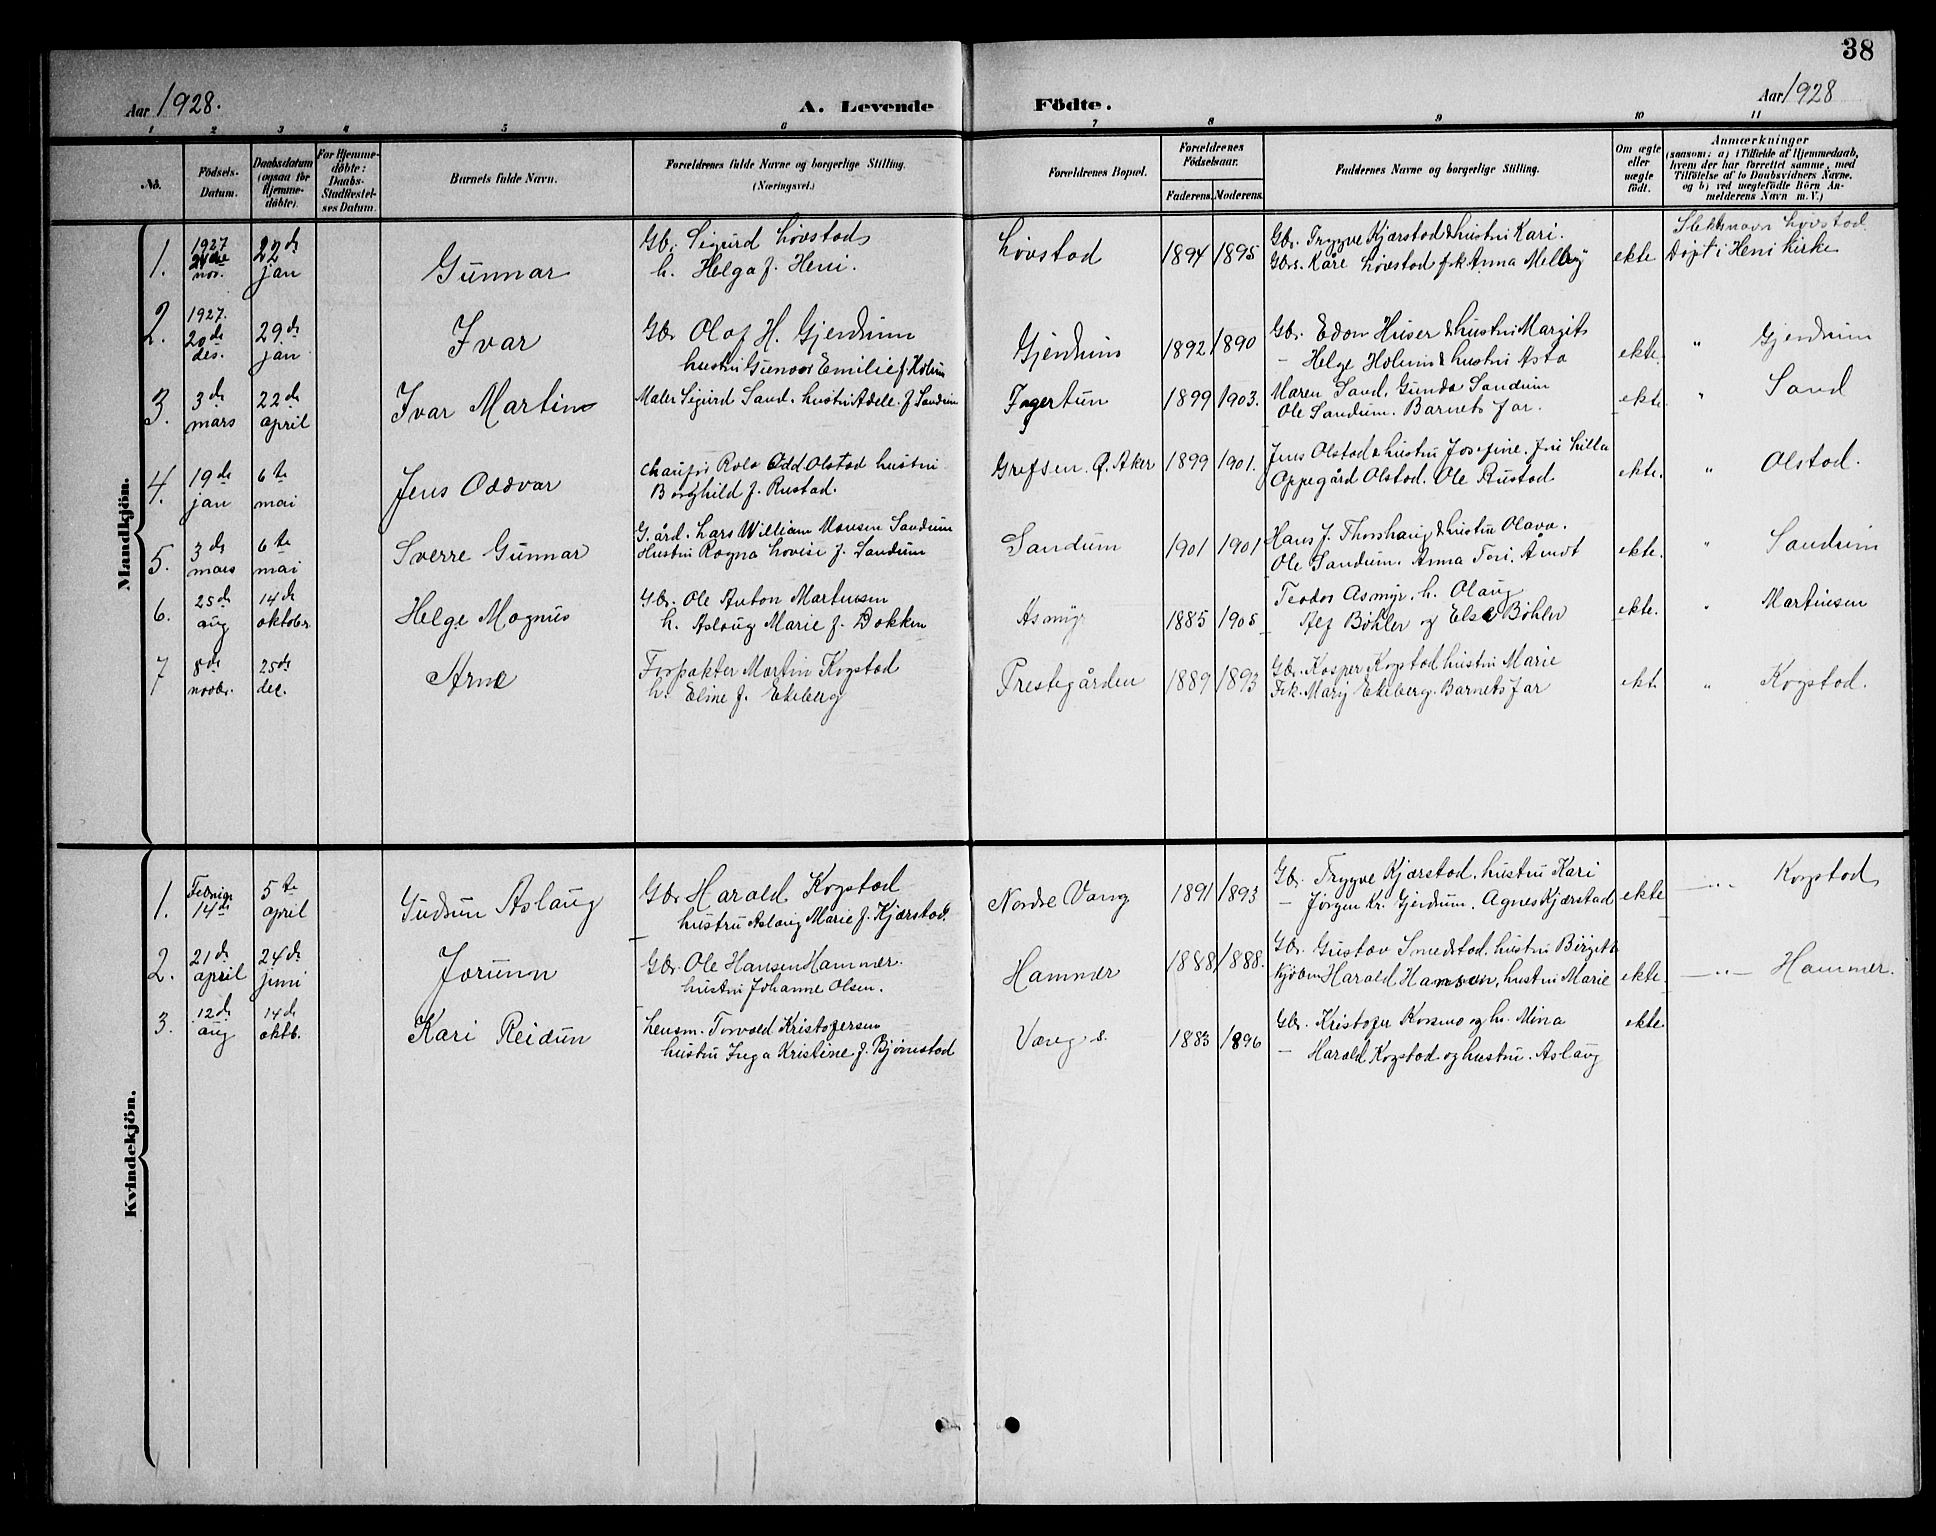 38
Aar 1928. A. Levende Födte. Aar 1928
1 2 3 4 5 6 7 8 9 10 11
No. Födsels-Datum. Daabsdatum (ogsaa for Hjemmedöbte). For Hjemmedöbte: Daabs-Stadfestelses Datum. Barnets fulde Navn. Forældrenes fulde Navne og borgerlige Stilling. (Næringsvei.) Forældrenes Bopæl. Forældrenes Födselsaar. Faderens. Moderens. Faddernes Navne og borgerlige Stilling. Om ægte eller uægte födt. Anmærkninger (saasom: a) i Tilfælde af Hjemmedaab, hvem der har forrettet samme, med Tilföielse af to Daabsvidners Navne, og b) ved uægtefödte Börn Anmelderens Navn m. V.)
Mandkjön.
1. 1927 nov. 22de jan Gunnar Gbr. Sigurd Lövstad
h. Helga f. Heni. Lövstad 1894 1895 Gbr. Trygve Kjærstad & hustru Kari.
Gbrs. Kåre Lövstad frk Anna Melby ekte Slektsnavn Lövstad
Döpt i Heni Kirke
2. 1927. 20de des. 29de jan Ivar Gbr Olaf H. Gjerdrum
hustru Gunvor Emilie f. Holum Gjerdrum 1892 1890 Gbr. Edon Huser & hustru Margit
— Helge Holum & hustru Asta ekte. " Gjerdrum
3. 3de mars 22de april Ivar Martin Maler Sigurd Sand. hustru Adele. f. Sandum Fagertun 1899 1903. Maren Sand, Gunda Sandum
Ole Sandum. Barnets far. ekte " Sand
4. 19de jan 6te mai Jens Oddvar Chaufför Rolv Odd Olstad hustru
Borghild f. Rustad. Grefsen. Ø. Aker 1899 1901. Jens Olstad & hustru Josefine. fru Lilla
Oppegård Olstad. Ole Rustad ekte. " Olstad.
5. 3de mars 6te mai Sverre Gunnar G.ård. Lars William Monsen Sandum
Hustru Ragna Lovise f. Sandum Sandum 1901 1901 Hans J. Thorshaug & hustru Olava.
Ole Sandum. Anna Tori. Arndt ekte. " Sandum
6. 25de aug 14de oktober Helge Magnus Gbr. Ole Anton Martinsen
h. Aslaug Marie f. Dokken Asmyr 1885 1905 Teodor Asmyr. h. Olaug
Alf Böhler og Else Böhler ekte. " Martinsen
7 8de novbr. 25de dec. Arne Forpakter Martin Kogstad
h. Eline f. Ekeberg Prestegården 1889 1893 Gbr. Kasper Kogstad hustru Marie
Frk. Mary Ekeberg. Barnets far ekt. " Kogstad.
Kvindekjön.
1. 14de 5te april Gudrun Aslaug Gbr Harald Kogstad
hustru Aslaug Marie f. Kjærstad. Nordre Vang 1891 1893 Gbr. Trygve Kjærstad, hustru Kari
— Jörgen Kr. Gjerdrum. Agnes Kjærstad ekte —"— Kogstad
2. 21de april 24de juni Jorunn Gbr. Ole Hansen Hammer.
hustru Johanne Olsen. Hammer 1888 1888. Gbr. Gustav Smedstad, hustru Birgitte
Kjöbm Harald Hansen, hustru Marie ekte —"— Hammer.
3. 12de aug 14de oktb. Kari Reidun Lensm. Torvald Kristofersen
hustru Inga Kristine f. Björnstad Vang s. 1883 1896 Gbr. Kristofer Korsmo og h. Mina
— Harald Kogstad og hustru. Aslaug ekte.